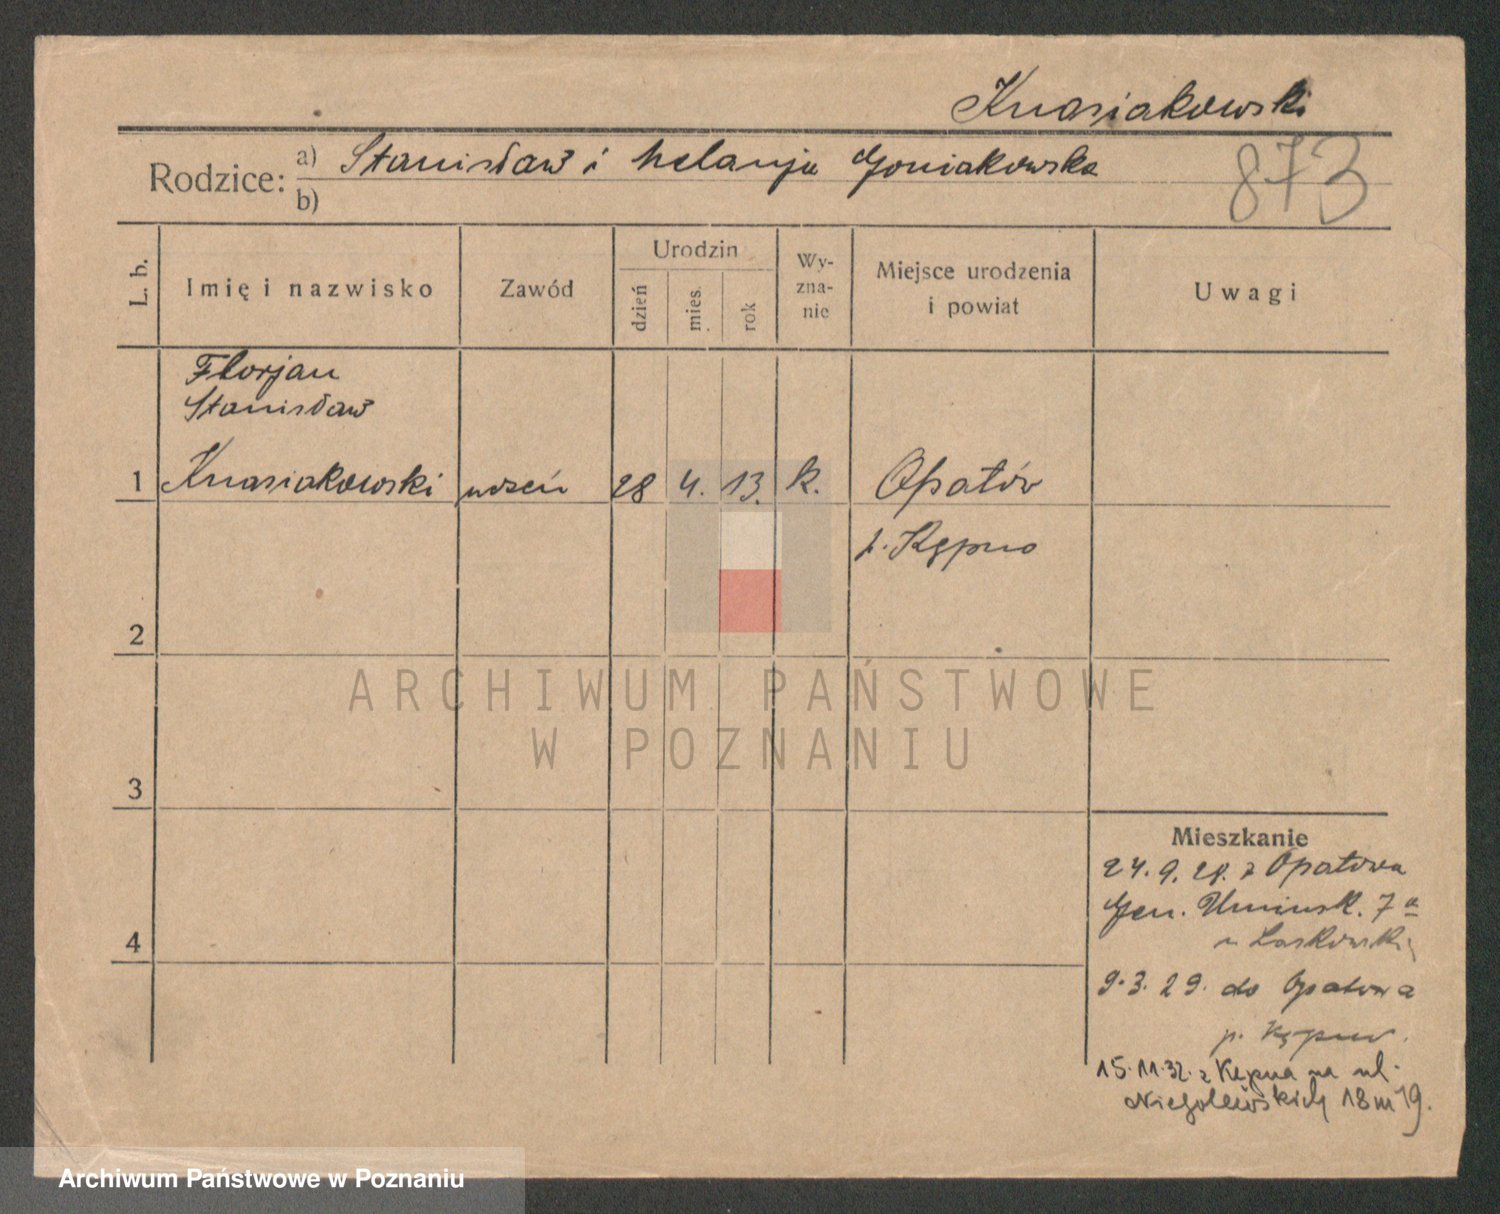 Knasiakowski
Rodzice: a) Stanisław i Melanja Goniakowska
b)
873
L. b.
Imię i nazwisko
Zawód
Urodzin
dzień
mies.
rok
Wy-
zna-
nie
Miejsce urodzenia
i powiat
Uwagi
Florjan
Stanisław
1 Knasiakowski uczeń 28 4. 13. k. Opatów
p. Kępno
2
ARCHIWUM PAŃSTWOWE
W POZNANIU
3
Mieszkanie
24.9.28. z Opatowa
Gen. Umińsk. 7a
u Laskowski
4
9.3.29. do Opatowa
p. Kępno.
15.11.32. z Kępna na ul.
Niegolewskich 18 m 19.
Archiwum Państwowe w Poznaniu